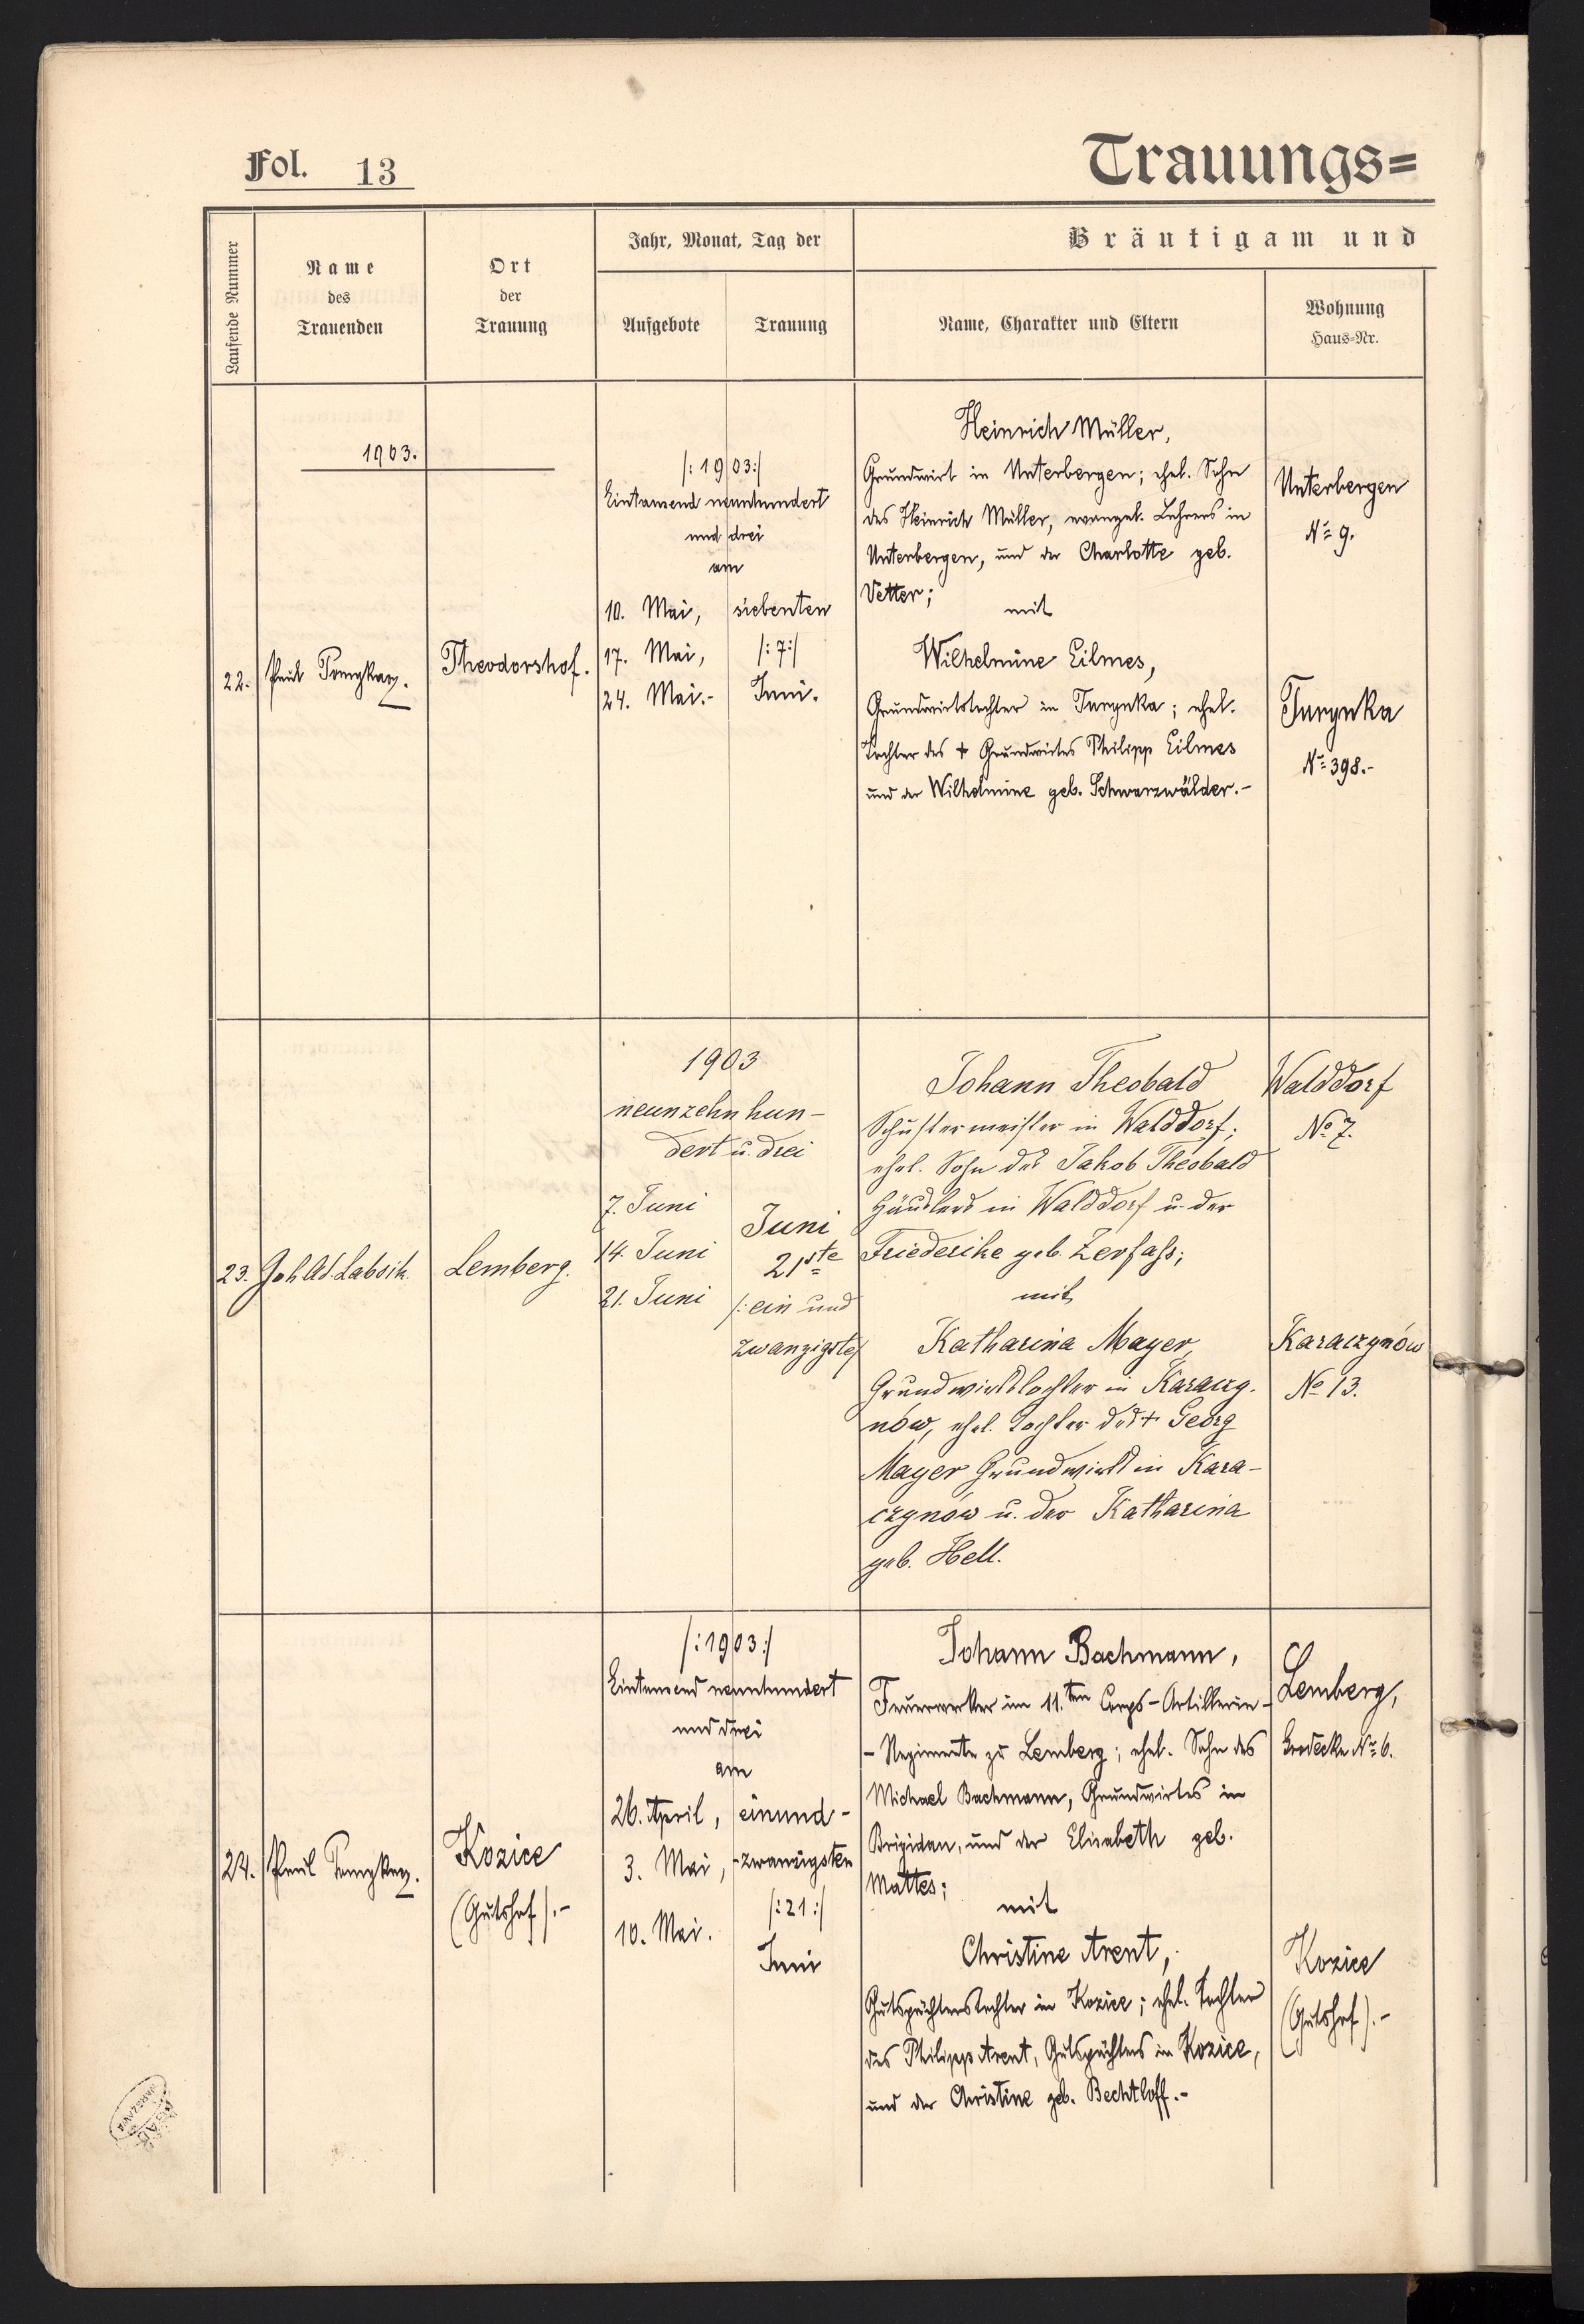 Fol. 13
Trauungs=
Laufende Nummer
Name
des
Trauenden
Ort
der
Trauung
Jahr, Monat, Tag der
Aufgebote
Trauung
Bräutigam und
Name, Charakter und Eltern
Wohnung
Haus=Nr.
1903.
22.
Paul
Theodorshof.
/:1903:/
Eintausend neunhundert
und drei
am
10. Mai,
17. Mai,
24. Mai.-
siebenten
/:7:/
Juni.
Heinrich Müller,
Grundwirt in Unterbergen; ehel. Sohn
des Heinrich Müller, evangel. Lehrers in
Unterbergen, und der Charlotte geb.
Vetter;
mit
Wilhelmine Eilmes,
Grundwirtstochter in Turynka; ehel.
Tochter des + Grundwirtes Philipp Eilmes
und der Wilhelmine geb. Schwarzwälder.-
Unterbergen
No 9.
Turynka
No 398.-
23.
Joh Ad. Labsik.
Lemberg.
1903
neunzehnhun-
dert u. drei
7. Juni
14. Juni
21. Juni
Juni
21ste
/: ein und
zwanzigste/
Johann Theobald
Schustermeister in Walddorf;
ehel. Sohn des Jakob Theobald
Häuslers in Walddorf u. der
Friederike geb. Zerfaß;
mit
Katharina Mayer,
Grundwirtstochter in Karaczy-
nów, ehel. Tochter des + Georg
Mayer Grundwirt in Kara-
czynów u. der Katharina
geb. Hell.
Walddorf
No 7.
Karaczynów
No 13.
24.
Paul
Kozice
(Gutshof).-
/:1903:/
Eintausend neunhundert
und drei
am
26. April,
3. Mai,
10. Mai.
einund-
-zwanzigsten
/:21:/
Juni
Johann Bachmann,
Feuerwerker im 11.ten Corps-Artillerie-
-Regimente zu Lemberg; ehel. Sohn des
Michael Bachmann, Grundwirtes in
Brigidau, und der Elisabeth geb.
Mattes;
mit
Christine Arent,
Gutspächterstochter in Kozice; ehel. Tochter
des Philipp Arent, Gutspächters in Kozice,
und der Christine geb. Bechtloff.-
Lemberg,
Grodecka No 6.
Kozice
(Gutshof).-